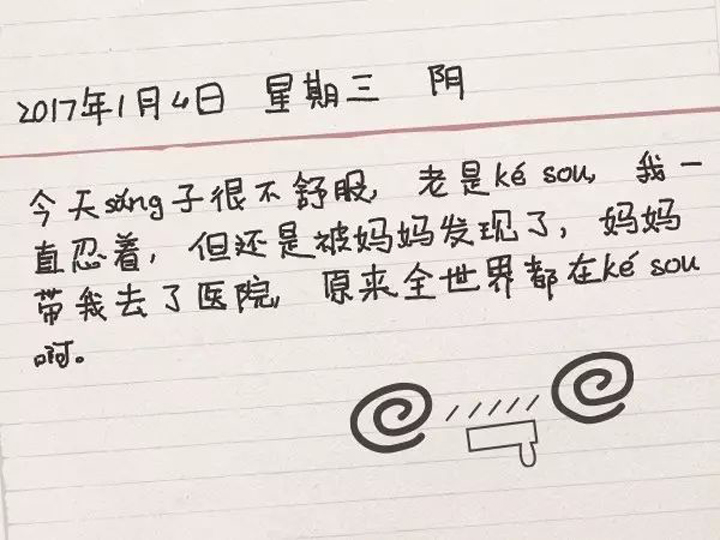 2017年1月4日 星期三 阴
今天sáng子很不舒服，老是ké sou，我一
直忍着，但还是被妈妈发现了，妈妈
带我去了医院，原来全世界都在ké sou
啊。